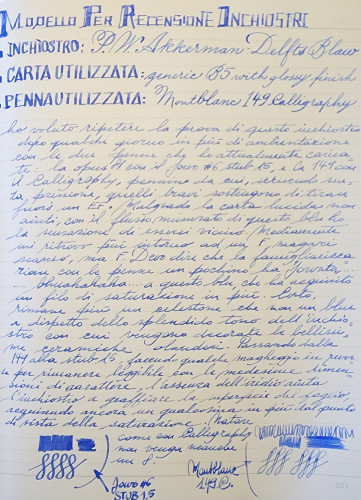 Modello Per Recensione Inchiostri
INCHIOSTRO: P.W. Akkerman - Delfts Blauw
CARTA UTILIZZATA: generic B5 with glossy finish
PENNA UTILIZZATA: Montblanc 149 Calligraphy
ho voluto ripetere la prova di questo inchiostro
dopo qualche giorno in più di ambientazione
con le due penne che ho attualmente carica
te: la opus 14 con il Jowo #6 stub 1.5, e la 149 con
il Calligraphy, pennino la cui, secondo
pressione, quelli bravi sostengono di tirare
fuori un EF. Malgrado la carta lucida non
aiuti, con il flusso misurato di questo blu ho
la sensazione di esserci vicino. Mediamente
mi ritrovo più intorno ad un F, magari
scarso, ma F. Devo dire che la famigliarizza
zione con le penne un pochino ha "giovato"...
... a questo blu, che ha acquisito
un filo di saturazione in più. Certo,
rimane più un celestone che non un blue
a dispetto dello splendido tono dell'inchio
stro con cui vengono decorate le bellissi
me ceramiche olandesi. Passando dalla
149 allo stub 1.5 facendo qualche
per rimanere leggibile con le medesime dimen
sioni di carattere, l'assenza dell'iridio aiuta
l'inchiostro a graffiare la superficie del foglio,
acquisendo ancora un qualcosina in più dal punto
di vista della saturazione.
come con Calligraphy
non venga neanche
un 8.
Jowo #6
STUB 1.5
Montblanc
149 C.
201